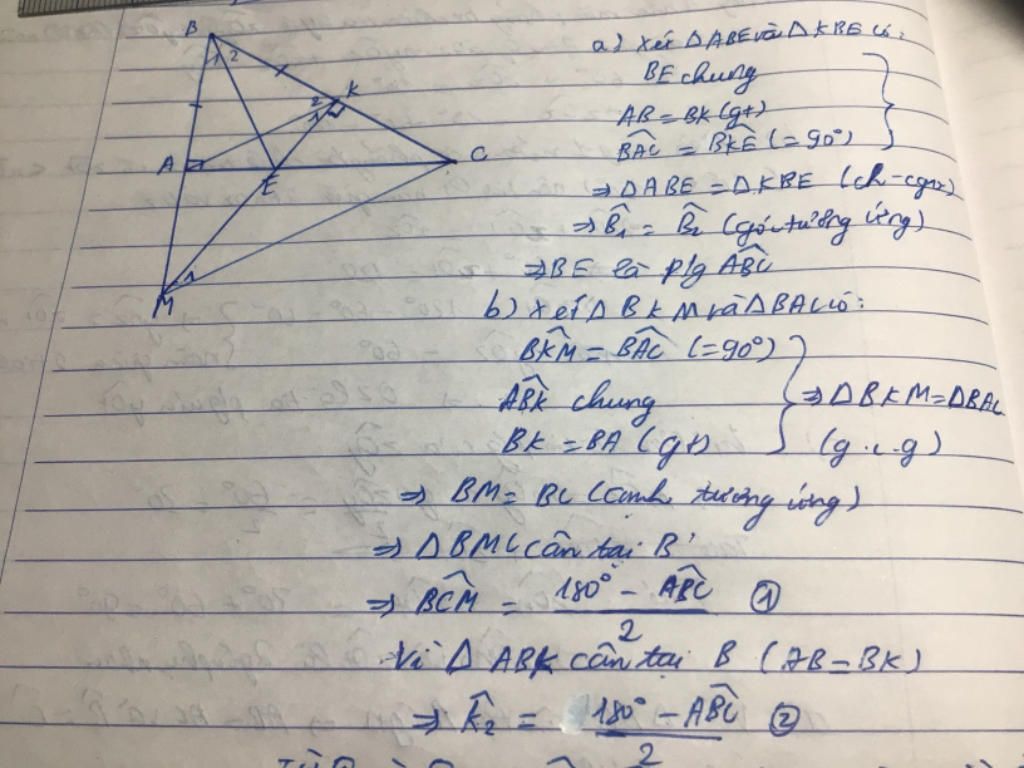 B
1 2
K
2
1
A
E
C
M
1
a) Xét ΔABE và ΔKBE có:
BE chung
AB = BK (gt)
B̂AC = B̂KE (= 90°)
⇒ ΔABE = ΔKBE (ch-cgv)
⇒ B̂₁ = B̂₂ (góc tương ứng)
⇒ BE là p/g ÂBC
b) Xét ΔBKM và ΔBAC có:
B̂KM = B̂AC (= 90°)
ÂBK chung
BK = BA (gt)
⇒ ΔBKM = ΔBAC
(g.c.g)
⇒ BM = BC (cạnh tương ứng)
⇒ ΔBMC cân tại B
⇒ BĈM = (180° - AB̂C)/2 ①
Vì ΔABK cân tại B (AB = BK)
⇒ K̂₂ = (180° - AB̂C)/2 ②